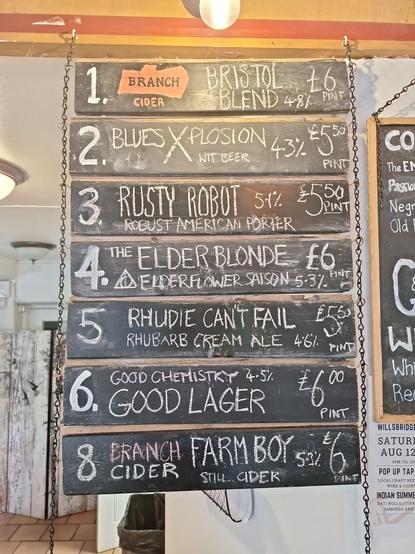 1. BRANCH CIDER BRISTOL BLEND 4.8% £6 PINT
2. BLUES XPLOSION WIT BEER 4.3% £5.50 PINT
3. RUSTY ROBOT 5.1% £5.50 PINT
ROBUST AMERICAN PORTER
4. THE ELDER BLONDE £6 PINT
ELDERFLOWER SAISON 5.3%
5 RHUDIE CAN'T FAIL PINT
RHUBARB CREAM ALE 4.6%
6. GOOD CHEMISTRY 4.5% £6.00
GOOD LAGER PINT
8 BRANCH CIDER FARM BOY £6 PINT
STILL CIDER
CO
The
Negr
Old
W
Whi
Re
WILLSBRIDG
SATUR
AUG 12
POP UP TAP
LOCAL CRAFT BEE
WINE &
INDIAN SUMME